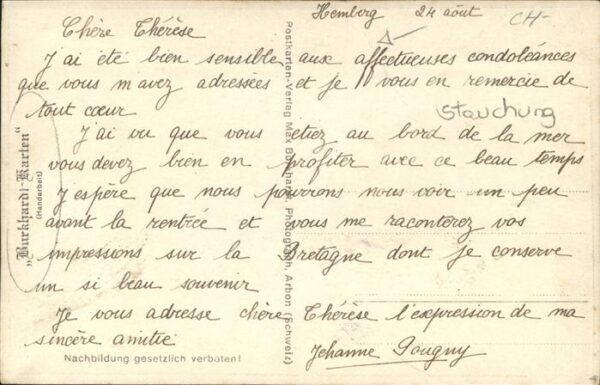 Hemberg 24 août CH-
Chère Thérèse
J'ai été bien sensible aux affectueuses condoléances
que vous m'avez adressées et je vous en remercie de
tout cœur
Stauchung
J'ai vu que vous étiez au bord de la mer
vous devez bien en profiter avec ce beau temps
J'espère que nous pourrons nous voir un peu
avant la rentrée et vous me raconterez vos
impressions sur la Bretagne dont je conserve
un si beau souvenir
Je vous adresse chère Thérèse l'expression de ma
sincère amitié
Jehanne Pougny
„Burkhardt-Karten“
(Handarbeit)
Postkarten-Verlag Max Burkhardt, Photograph, Arbon (Schweiz)
Nachbildung gesetzlich verboten!